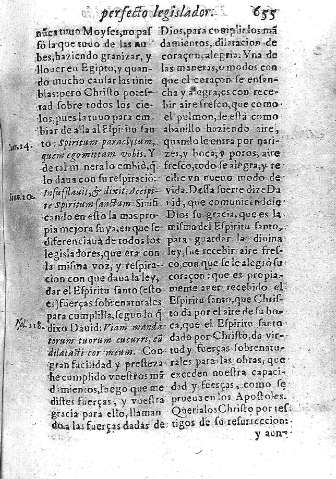 perfecto legislador. 655
nũca tuuo Moyses, no pas
só la que tuuo de las nu
bes, haziendo granizar, y
llouer en Egipto, y quan-
do mucho causar las tinie
blas: pero Christo potes-
tad sobre todos los cie-
los, pues la tuuo para em
biar de alla al Espiritu san
to: Spiritum paraclytum,
quem ego mittam vobis. Y
de tal manera lo embió, q̃
lo daua con su respiració:
Insufflauit, & dixit, accipi-
te Spiritum sanctum. Sinifi
cando en esto la mas pro
pia mejora suya, en que se
diferenciaua de todos los
legisladores, que era con
la misma voz, y respira-
cion con que daua la ley,
dar el Espiritu santo (esto
es) fuerças sobrenaturales
para complilla, segun lo q̃
dixo Dauid: Viam manda
torum tuorum cucurri, cũ
dilatasti cor meum. Con
gran facilidad y presteza
he cumplido vuestros mã
damientos, luego que me
distes fuerças, y vuestra
gracia para ello, llaman
do a las fuerças dadas de
Dios, para complir los mã
damientos, dilatacion de
coraçon, alegria. Vna de
las maneras, o modos con
que el coraçon se ensan-
cha y alegra, es con rece-
bir aire fresco, que como
el pulmon, le està como
abanillo haziendo aire,
quando le entra por nari-
zes, y boca, y poros, aire
fresco, todo se alegra, y re
cibe vn nueuo modo de
vida. Desta suerte dize Da
uid, que comunicandole
Dios su gracia, que es la
misma del Espiritu santo,
para guardar la diuina
ley, fue recebir aire fres-
co, con que se le alegrò su
coraçon: que es propia-
mente auer recebido el
Espiritu santo, que Chris-
to dà por el aire de su bo-
ca, que el Espiritu santo
dado por Christo, da vir-
tud y fuerças sobrenatu-
rales para las obras, que
exceden nuestra capaci-
dad y fuerças, como se
prueua en los Apostoles.
Querialos Christo por tes
tigos de su resurreccion:
y aun-
Ioan. 14.
Ioan. 20.
Psal. 118.